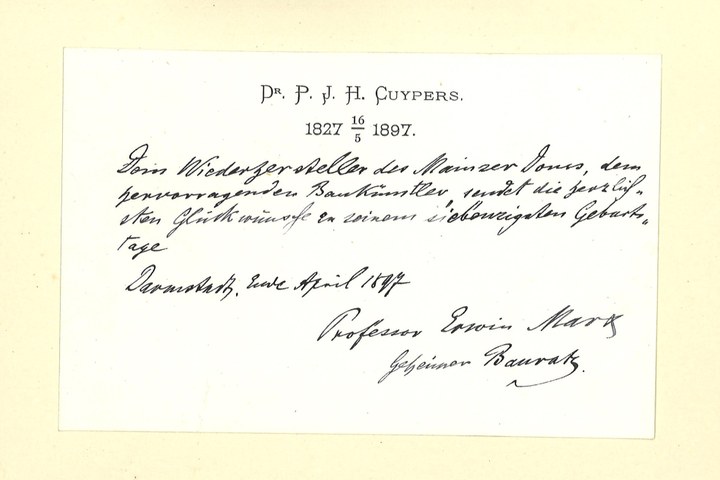 Dr. P. J. H. Cuypers.
1827 16/5 1897.
Dem Wiederhersteller des Mainzer Doms, dem
hervorragenden Baukünstler sendet die herzlich-
sten Glückwünsche zu seinem siebenzigsten Geburts-
tage
Darmstadt, Ende April 1897
Professor Erwin Marx
Geheimer Baurath.